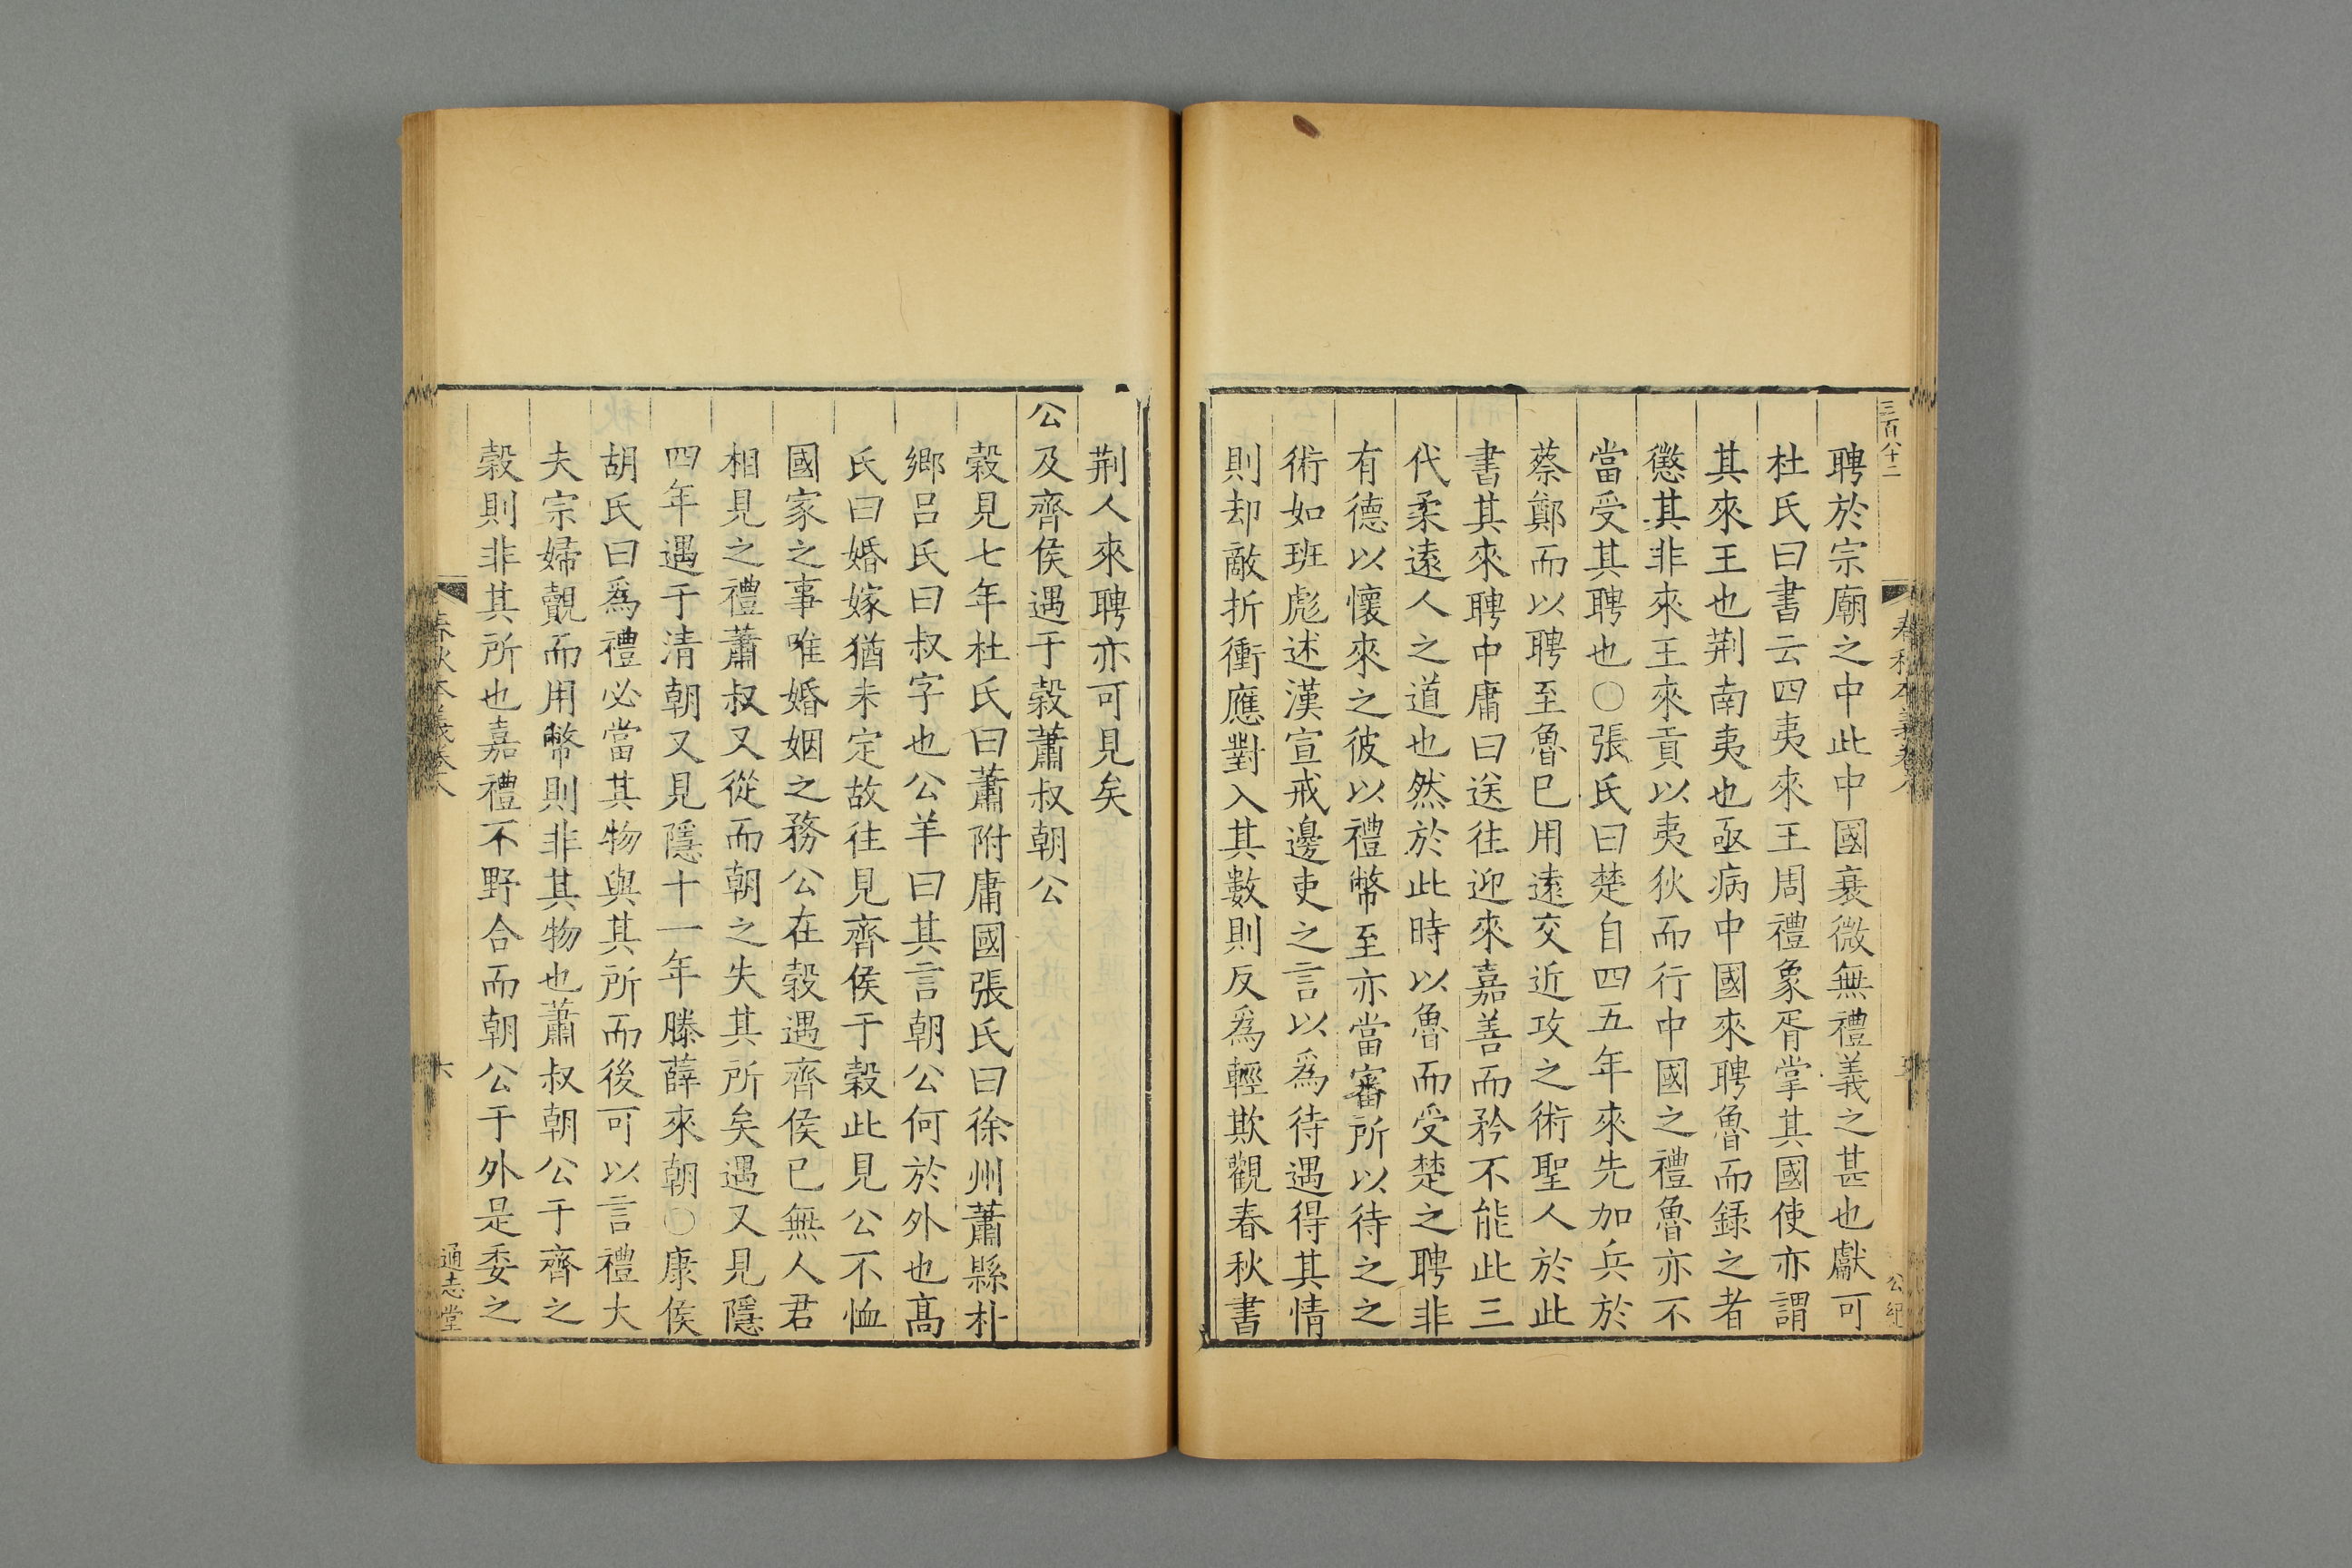 三百八十二
聘於宗廟之中此中國衰微無禮義之甚也獻可
杜氏曰書云四夷來王周禮象胥掌其國使亦謂
其來王也荆南夷也亟病中國來聘魯而録之者
懲其非來王來貢以夷狄而行中國之禮魯亦不
當受其聘也〇張氏曰楚自四五年來先加兵於
蔡鄭而以聘至魯已用遠交近攻之術聖人於此
書其來聘中庸曰送往迎來嘉善而矜不能此三
代柔遠人之道也然於此時以魯而受楚之聘非
有德以懷來之彼以禮幣至亦當審所以待之之
術如班彪述漢宣戒邊吏之言以爲待遇得其情
則却敵折衝應對入其數則反爲輕欺觀春秋書
荆人來聘亦可見矣
公及齊侯遇于穀蕭叔朝公
穀見七年杜氏曰蕭附庸國張氏曰徐州蕭縣朴
鄉吕氏曰叔字也公羊曰其言朝公何於外也髙
氏曰婚嫁猶未定故往見齊侯于穀此見公不恤
國家之事唯婚姻之務公在穀遇齊侯已無人君
相見之禮蕭叔又從而朝之失其所矣遇又見隱
四年遇于清朝又見隱十一年滕薛來朝〇康侯
胡氏曰爲禮必當其物與其所而後可以言禮大
夫宗婦覿而用幣則非其物也蕭叔朝公于齊之
穀則非其所也嘉禮不野合而朝公于外是委之
春秋本義卷八
六
通志堂